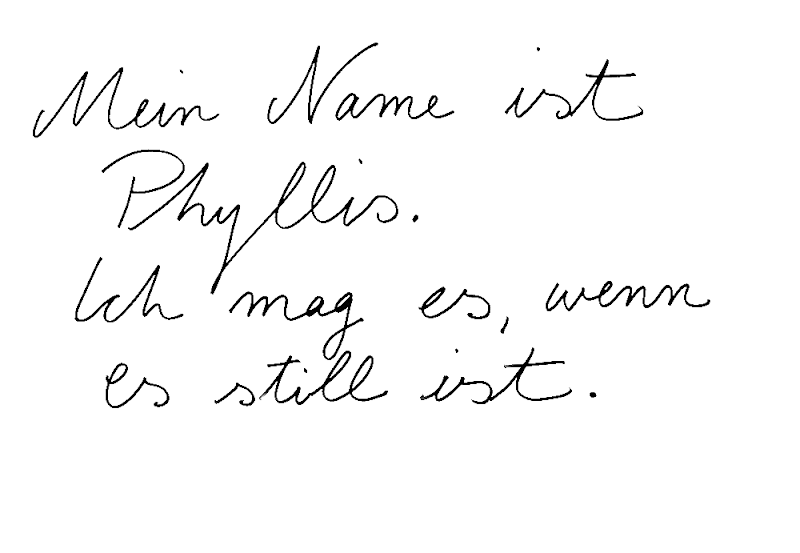 Mein Name ist
Phyllis.
Ich mag es, wenn
es still ist.